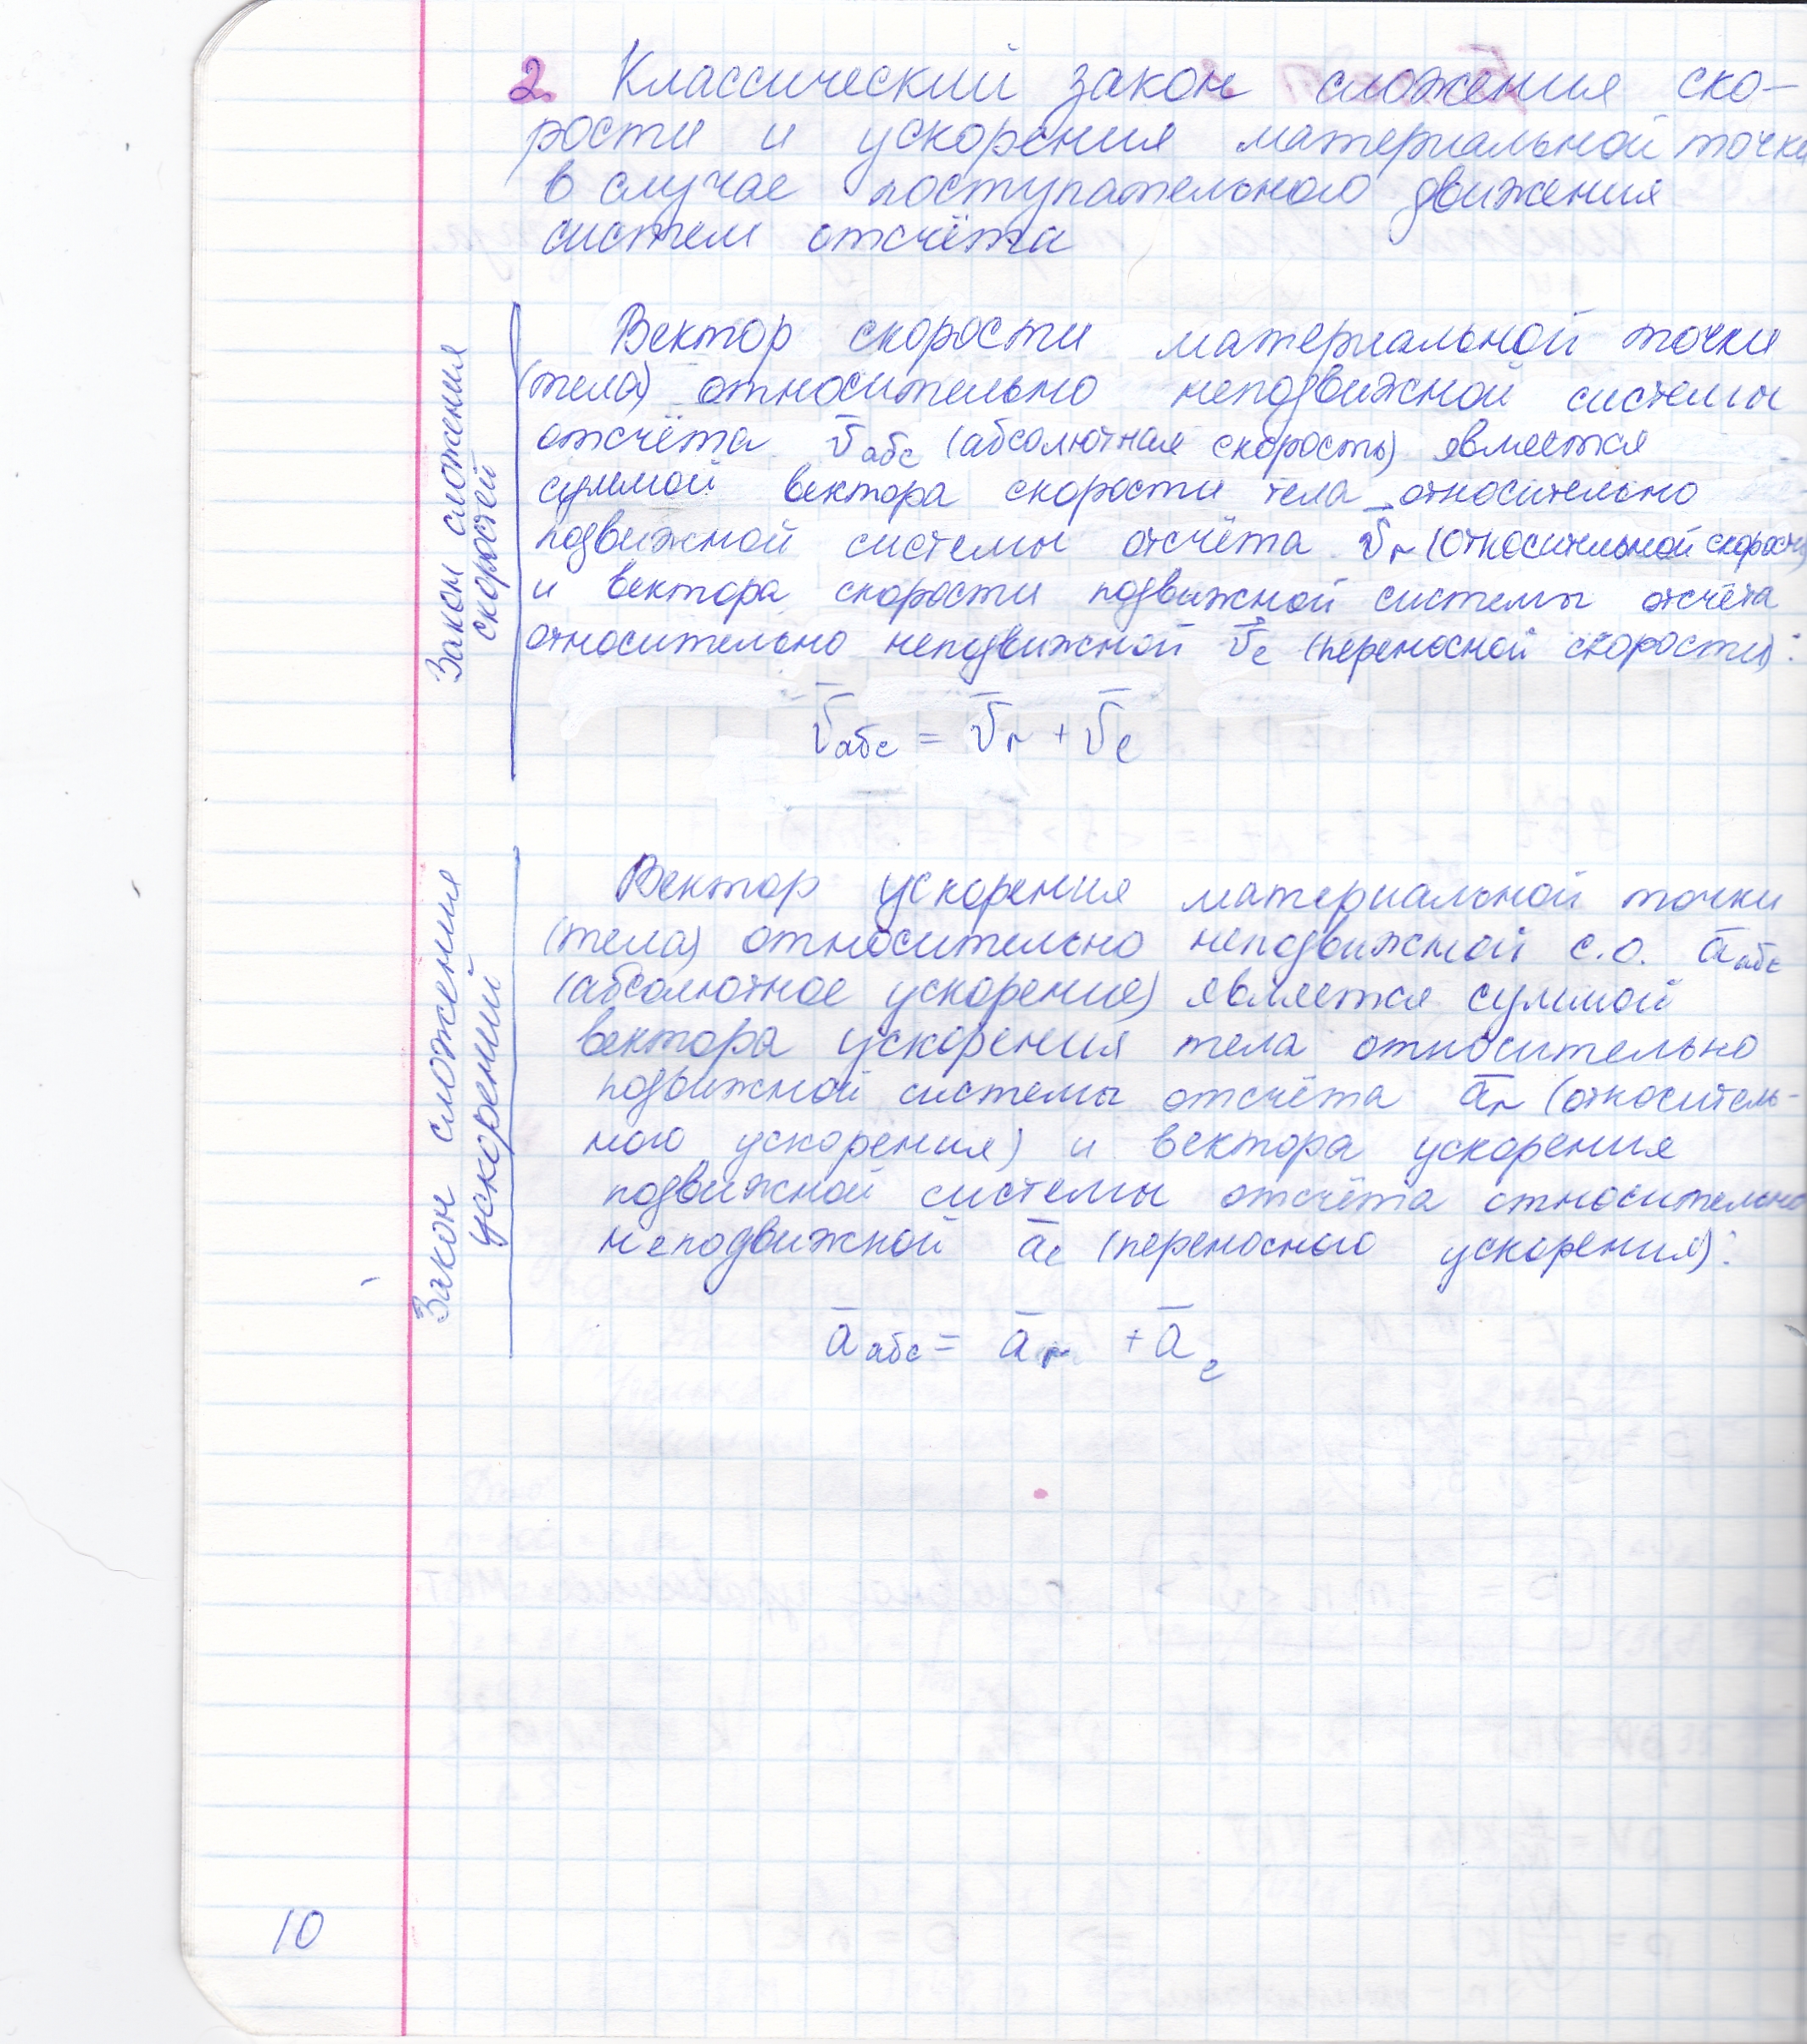 2. Классический закон сложения ско-
рости и ускорения материальной точки
в случае поступательного движения
систем отсчёта
Закон сложения
скоростей
Вектор скорости материальной точки
(тела) относительно неподвижной системы
отсчёта v̄абс (абсолютная скорость) является
суммой вектора скорости тела относительно
подвижной системы отсчёта v̄r (относительной скорости)
и вектора скорости подвижной системы отсчёта
относительно неподвижной v̄e (переносной скорости):
v̄абс = v̄r + v̄e
Закон сложения
ускорений
Вектор ускорения материальной точки
(тела) относительно неподвижной с.о. āабс
(абсолютное ускорение) является суммой
вектора ускорения тела относительно
подвижной системы отсчёта ār (относитель-
ного ускорения) и вектора ускорения
подвижной системы отсчёта относительно
неподвижной āe (переносного ускорения):
āабс = ār + āe
10